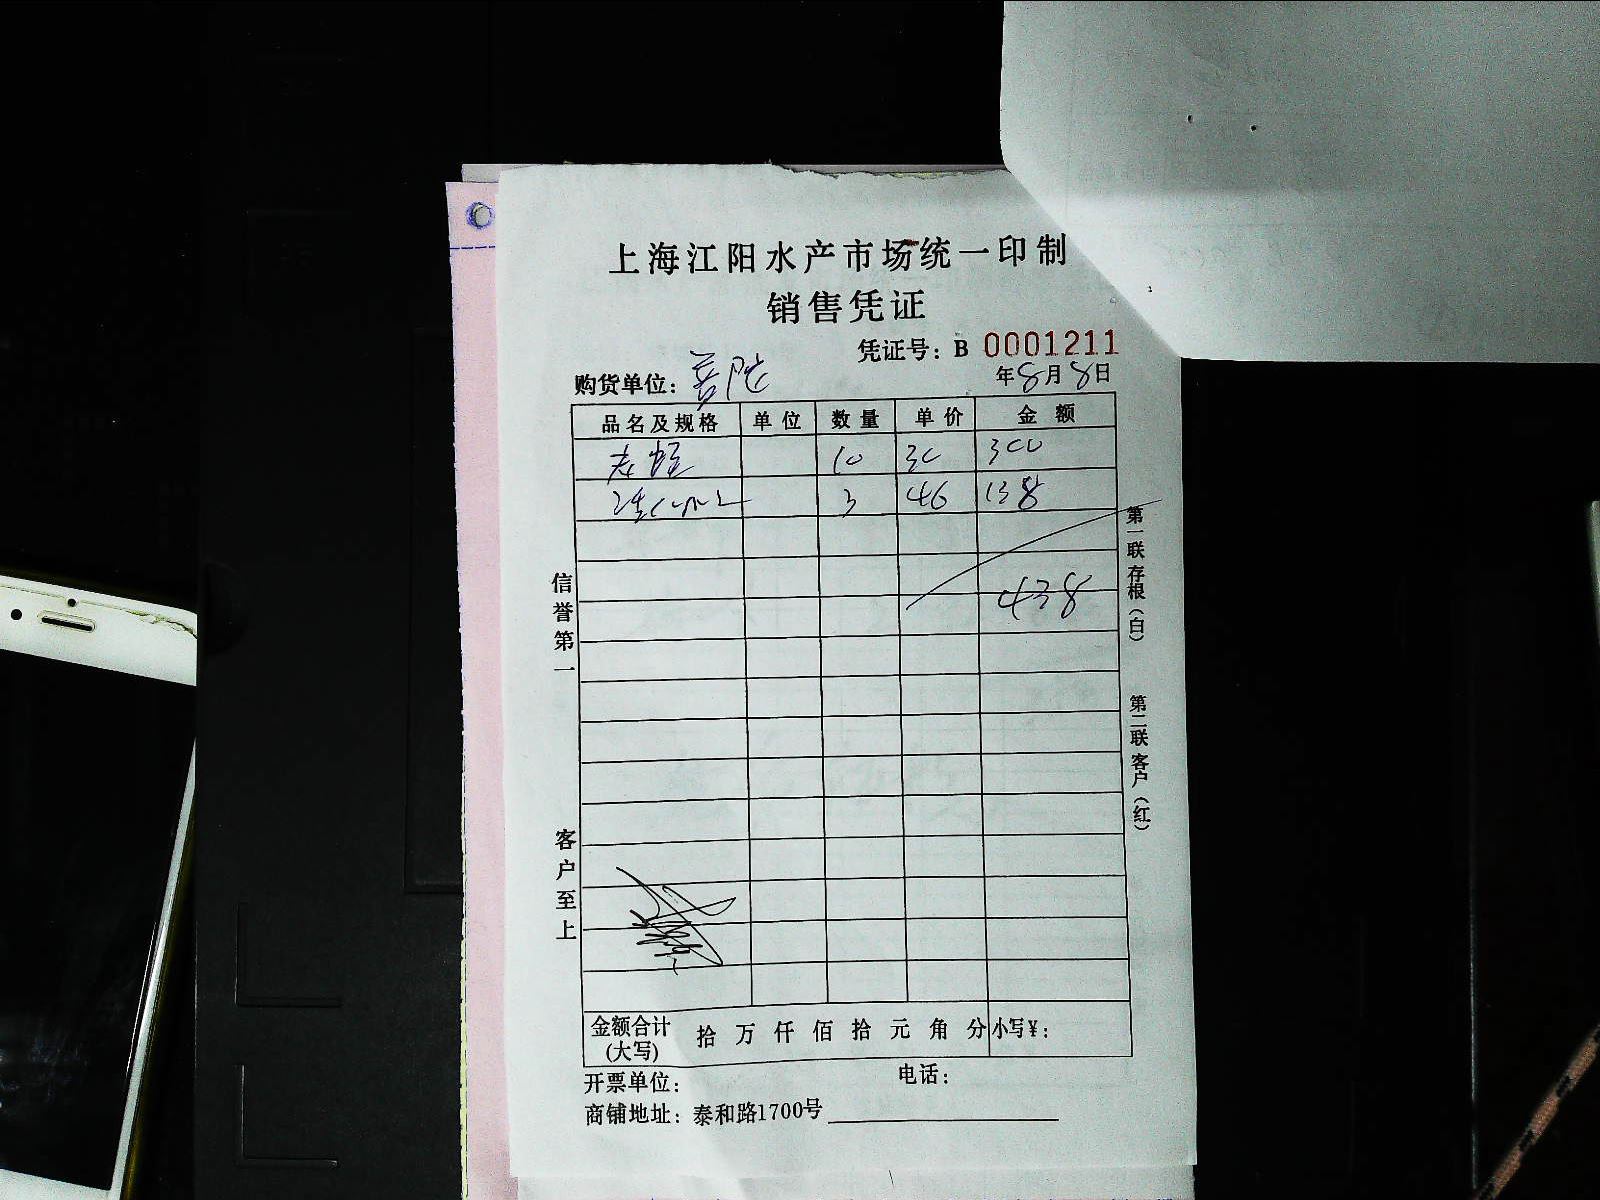 上海江阳水产市场统一印制
销售凭证
凭证号：B 0001211
购货单位：普陀
年8月8日
品名及规格 单位 数量 单价 金额
10 30 300
3 46 138
438
信誉第一
客户至上
第一联存根（白）
第二联客户（红）
金额合计（大写） 拾 万 仟 佰 拾 元 角 分 小写¥：
开票单位： 电话：
商铺地址：泰和路1700号